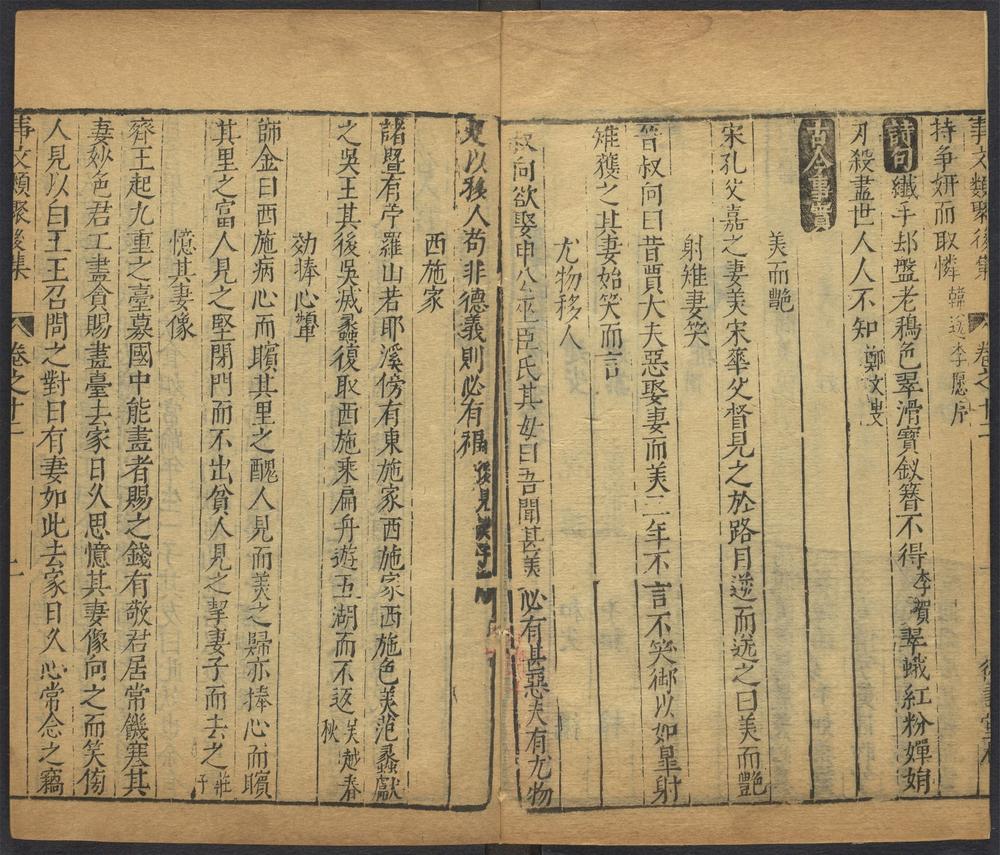 事文類聚後集 卷之十二
持争妍而取憐 韓送李愿序
詩句 纖手却盤老鴉色翠滑寶釵簪不得 李賀 翠蛾紅粉嬋娟
刃殺盡世人人不知 鄭文叟
古今事實
美而艷
宋孔父嘉之妻美宋華父督見之於路目逆而送之曰美而艷
射雉妻笑
晉叔向曰昔賈大夫惡娶妻而美三年不言不笑御以如臯射
雉獲之其妻始笑而言
尤物移人
叔向欲娶申公巫臣氏其母曰吾聞甚美必有甚惡夫有尤物
足以移人苟非德義則必有禍
西施家
諸暨有苧羅山若耶溪傍有東施家西施家西施色美范蠡獻
之吳王其後吳滅蠡復取西施乘扁舟遊五湖而不返 吳越春秋
効捧心顰
師金曰西施病心而矉其里之醜人見而美之歸亦捧心而矉
其里之富人見之堅閉門而不出貧人見之挈妻子而去之 莊子
憶其妻像
齊王起九重之臺募國中能畫者賜之錢有敬君居常饑寒其
妻妙色君工畫貪賜畫臺去家日久思憶其妻像向之而笑傍
人見以白王王召問之對曰有妻如此去家日久心常念之竊
事文類聚後集 卷之十二